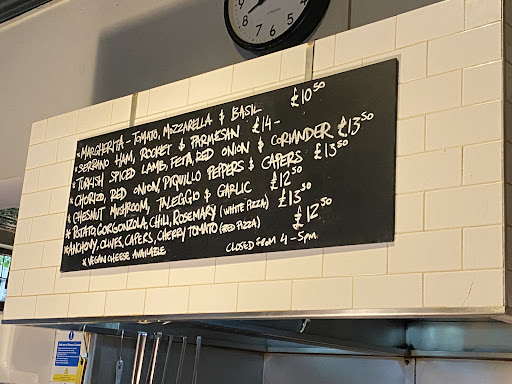 * MARGHERITA - TOMATO, MOZZARELLA & BASIL £10⁵⁰
* SERRANO HAM, ROCKET & PARMESAN £14-
* TURKISH SPICED LAMB, FETA, RED ONION & CORIANDER £13⁵⁰
* CHORIZO, RED ONION, PIQUILLO PEPPERS & CAPERS £13⁵⁰
* CHESNUT MUSHROOM, TALEGGIO & GARLIC £12⁵⁰
* POTATO, GORGONZOLA, CHILI, ROSEMARY (WHITE PIZZA) £13⁵⁰
* ANCHOVY, OLIVES, CAPERS, CHERRY TOMATO (RED PIZZA) £12⁵⁰
* VEGAN CHEESE AVAILABLE CLOSED FROM 4-5pm